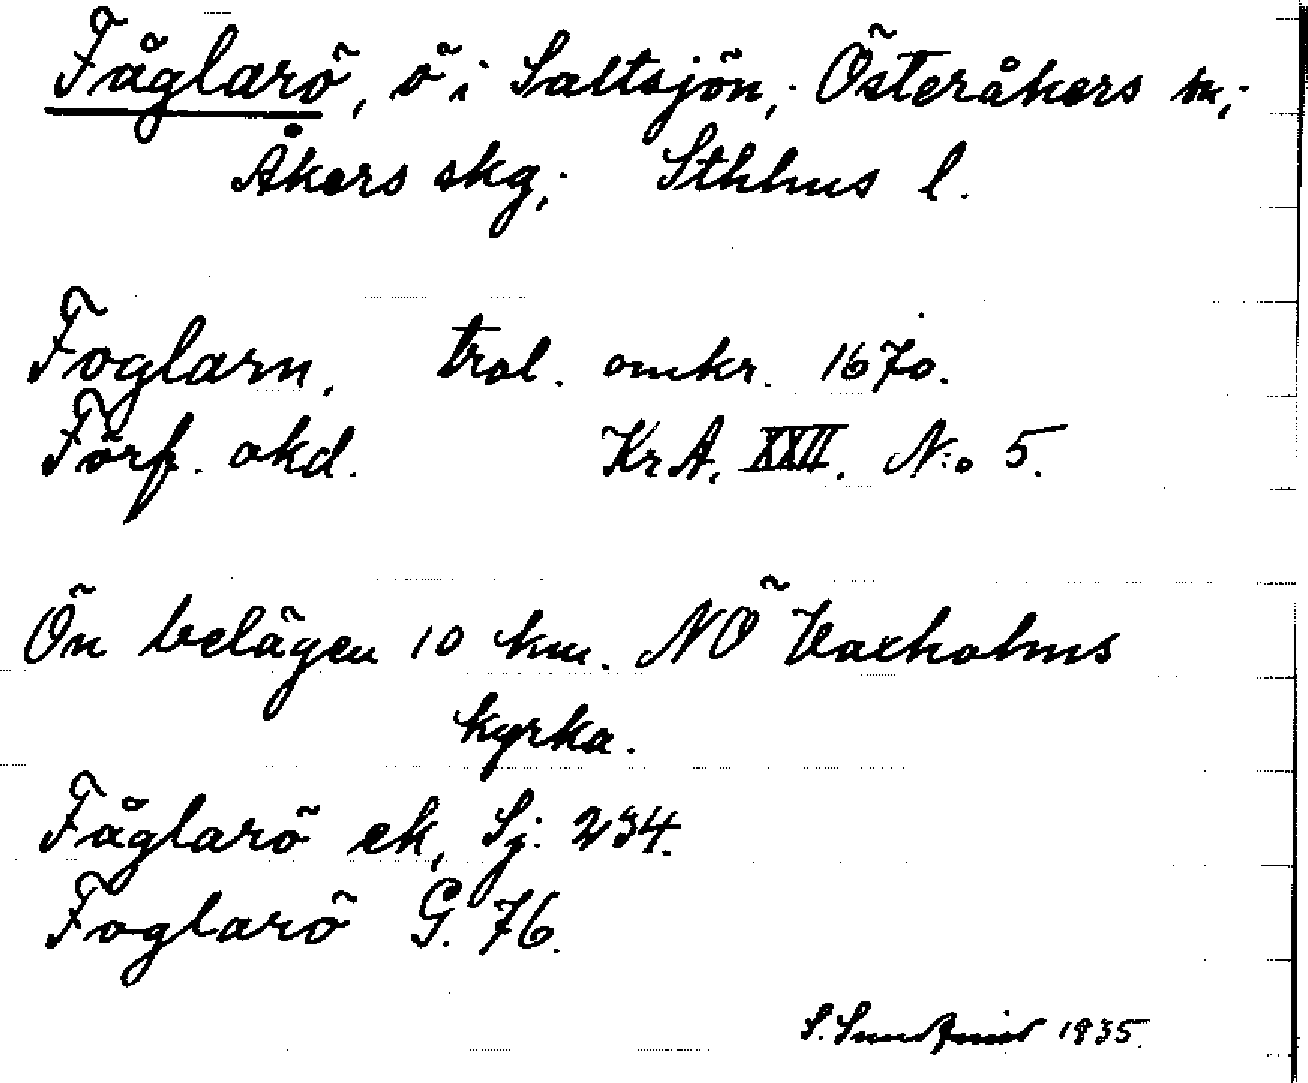 Fåglarö, ö i Saltsjön; Österåkers sn;
Åkers skg; Sthlms l.
Foglarn, trol. omkr. 1670.
Förf. okd. KrA. XXII. N:o 5.
Ön belägen 10 km. NÖ Vaxholms
kyrka.
Fåglarö ek, Sj. 234.
Foglarö G. 76.
S. 1935.